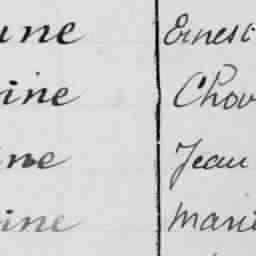 une Ernest
ine Chov
ine Jean
ine Mari